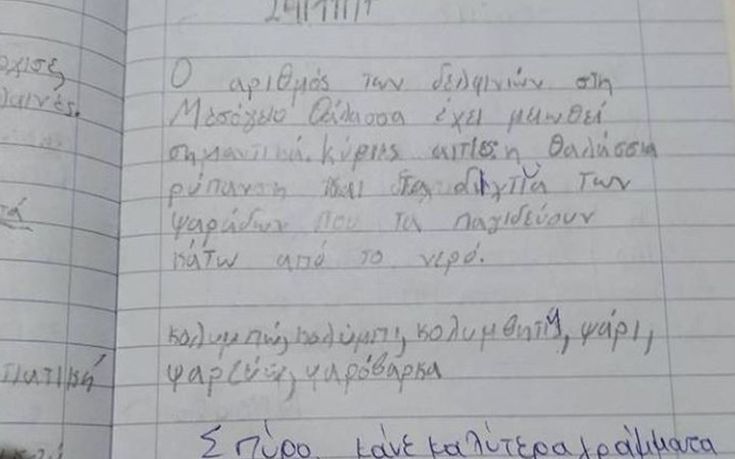 Ο αριθμός των δελφινιών στη
Μεσόγειο Θάλασσα έχει μειωθεί
σημαντικά. Κύριες αιτίες η θαλάσσια
ρύπανση και τα δίχτυα των
ψαράδων που τα παγιδεύουν
κάτω από το νερό.
κολυμπώ, κολύμπι, κολυμβητής, ψάρι,
ψαρεύω, ψαρόβαρκα
Σπύρο, κάνε καλύτερα γράμματα